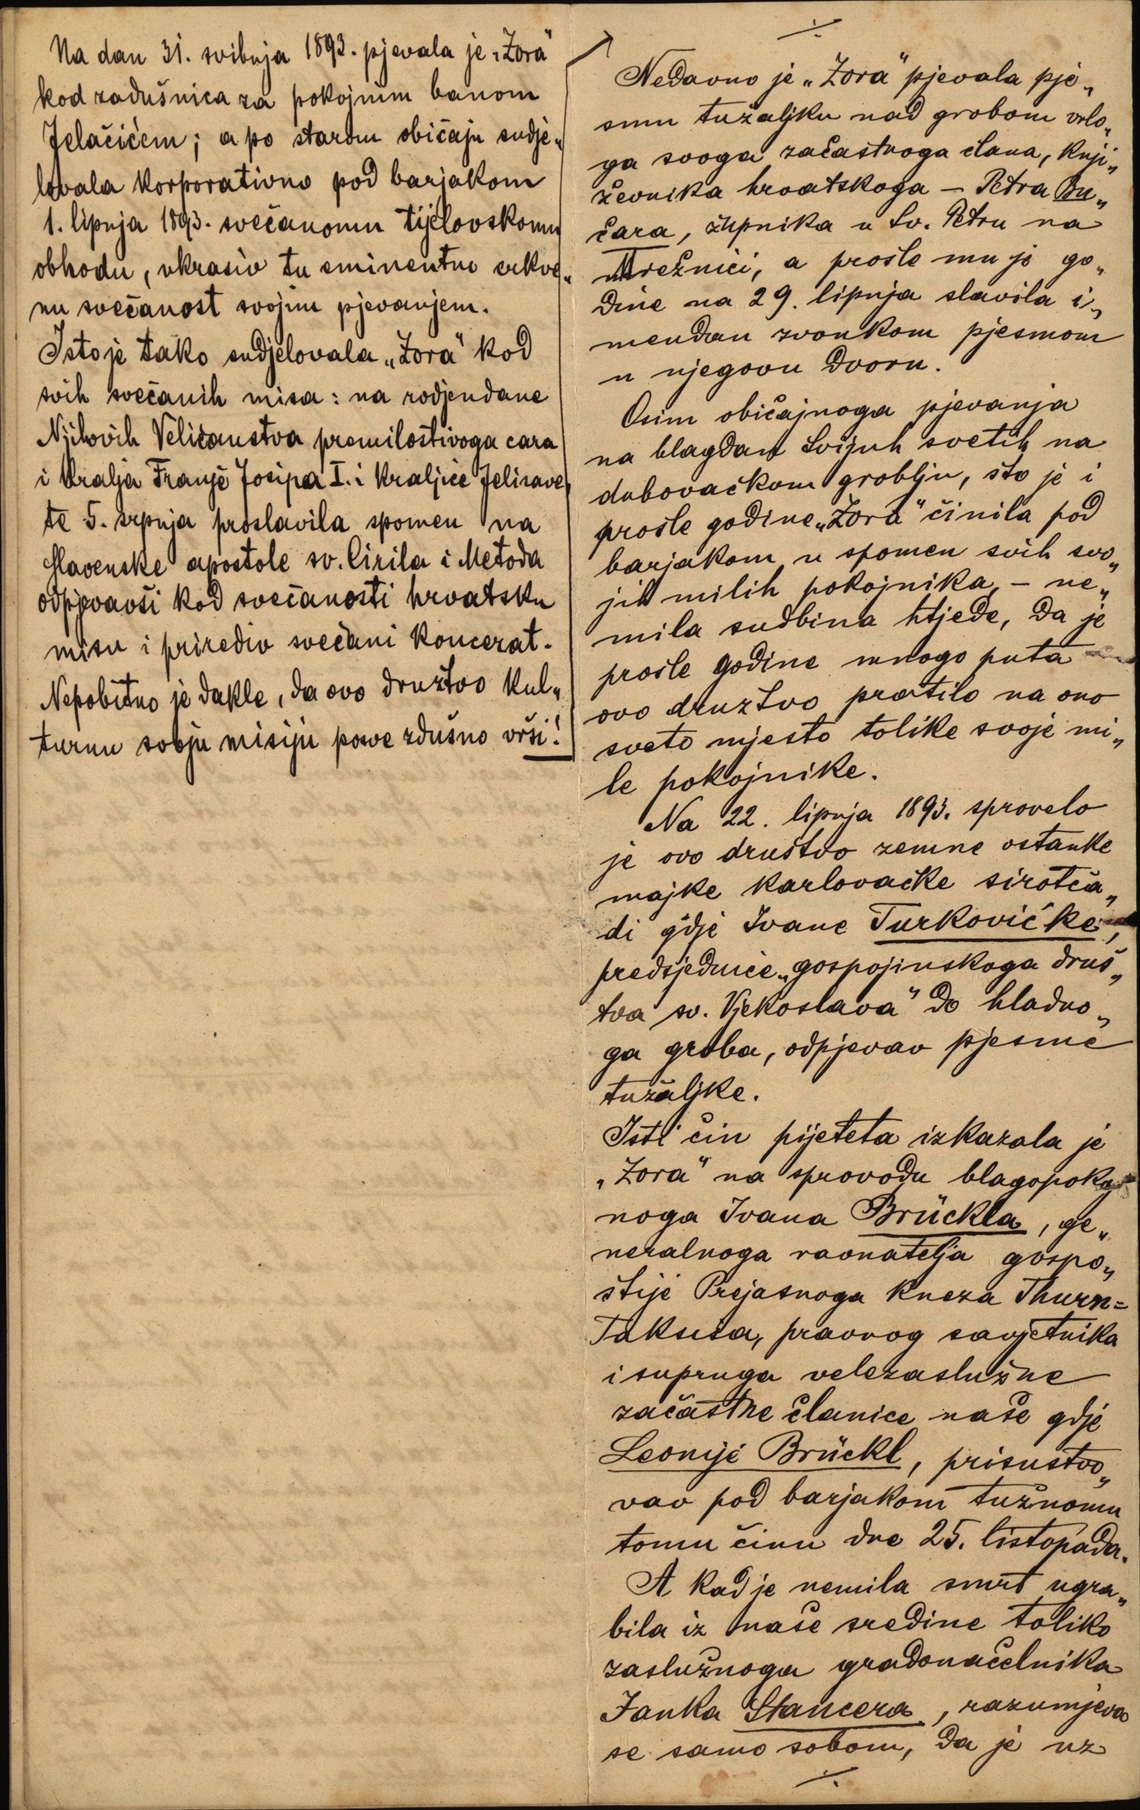 Na dan 31. svibnja 1893. pjevala je „Zora“
kod zadušnica za pokojnim banom
Jelačićem; a po starom običaju sudje„
lovala korporativno pod barjakom
1. lipnja 1893. svečanomu tijelovskomu
obhodu, ukrasiv tu eminentno crkve„
nu svečanost svojim pjevanjem.
Isto je tako sudjelovala „Zora“ kod
svih svečanih misa: na rodjendane
Njihovih Veličanstva premilostivoga cara
i kralja Franje Josipa I. i kraljice Jelisave„
te 5. srpnja proslavila spomen na
slavenske apostole sv. Cirila i Metoda
odpjevavši kod svečanosti hrvatsku
misu i priredio svečani koncerat.
Nepobitno je dakle, da ovo družtvo kul„
turnu svoju misiju posve zdušno vrši!
Nedavno je „Zora“ pjevala pje„
smu tužaljku nad grobom vrlo„
ga svoga začastnoga člana, knji„
ževnika hrvatskoga – Petra Bu„
čara, župnika u Sv. Petru na
Mrežnici, a prošle mu je go„
dine na 29. lipnja slavila i„
mendan zvonkom pjesmom
u njegovu dvoru.
Osim običajnoga pjevanja
na blagdan Svijuh svetih na
dubovačkom groblju, što je i
prošle godine „Zora“ činila pod
barjakom u spomen svih svo„
jih milih pokojnika, – ne„
mila sudbina htjede, da je
prošle godine mnogo puta
ovo družtvo pratilo na ono
sveto mjesto tolike svoje mi„
le pokojnike.
Na 22. lipnja 1893. sprovelo
je ovo društvo zemne ostanke
majke karlovačke sirotča„
di gdje Ivane Turkovićke,
predsjednice „gospojinskoga druš„
tva sv. Vjekoslava“ do hladno„
ga groba, odpjevav pjesme
tužaljke.
Isti čin pijeteta izkazala je
„Zora“ na sprovodu blagopokoj
noga Ivana Brückla, ge„
neralnoga ravnatelja gospo„
štije Prejasnoga kneza Thurn=
Taksisa, pravnog savjetnika
i supruga velezaslužne
začastne članice naše gdje
Leonije Brückl, prisustvo„
vav pod barjakom tužnomu
tomu činu dne 25. listopada.
A kad je nemila smrt ugra„
bila iz naše sredine toliko
zaslužnoga gradonačelnika
Janka Stancera, razumjeva
se samo sobom, da je uz